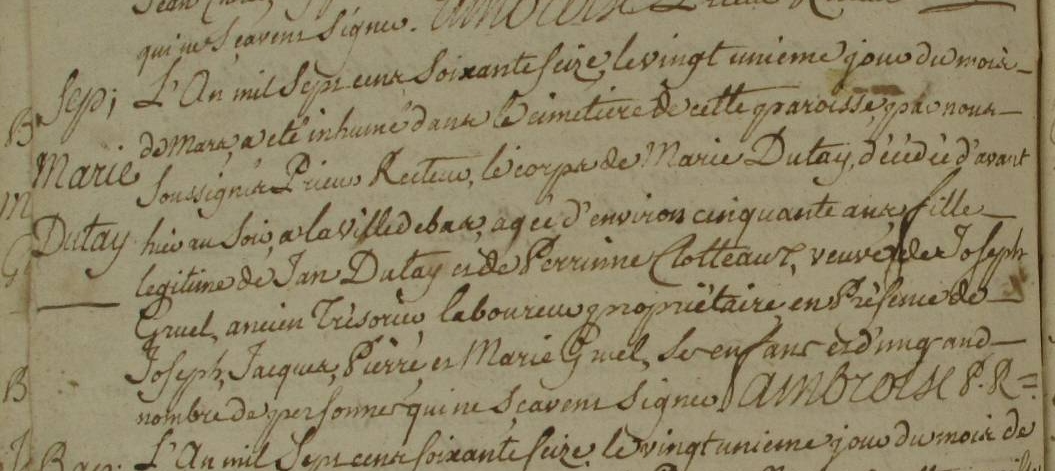 qui ne Sçavent Signer. Ambroise Prieur
Sep; L'An mil Sept cens Soixante Seize, le vingt unieme jour du mois
de Mars, a eté inhumé dans le cimetiere de cette paroisse, par nous
Marie Soussignés Prieur Recteur, le corps de Marie Dutay, décédée d'avant
Dutay hier au Soir, a la Ville debas, agée d'environ cinquante ans fille
legitime de Jan Dutay et de Perrinne Clotteaux, veuve de Joseph
Gruel, ancien Trésorier, laboureur proprietaire, en Présence de
Joseph, Jacques, Pierre et Marie Gruel, Ses enfans et d'un grand
nombre de personnes qui ne Scavent Signer. Ambroise P. R=
Bap: L'An mil Sept cens soixante Seize, le vingt unieme jour du mois de